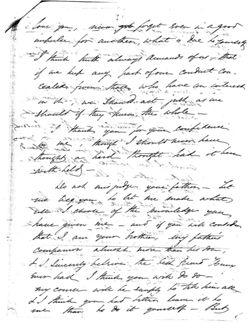 Love you, never forget even in a good
impulse for another, what is due to yourself
I think truth always demands of us, that
if we keep any part of our conduct con-
cealed from those who have an interest
in it. we should act just as we
should if they knew the whole —
I thank you for your confidence
in me though I should never have
thought a hard thought had it been
withheld.
Do not misjudge your father — let
me beg you, to let me make what
use I choose of the knowledge you
have given me — and if you not consider
that I am your brother, my father's
companion almost more than his son
& I sincerely believe the best friend
man had. I think you will do so
my course will be simply to tell him all
& I think you had better leave it to
me than to do it yourself — But